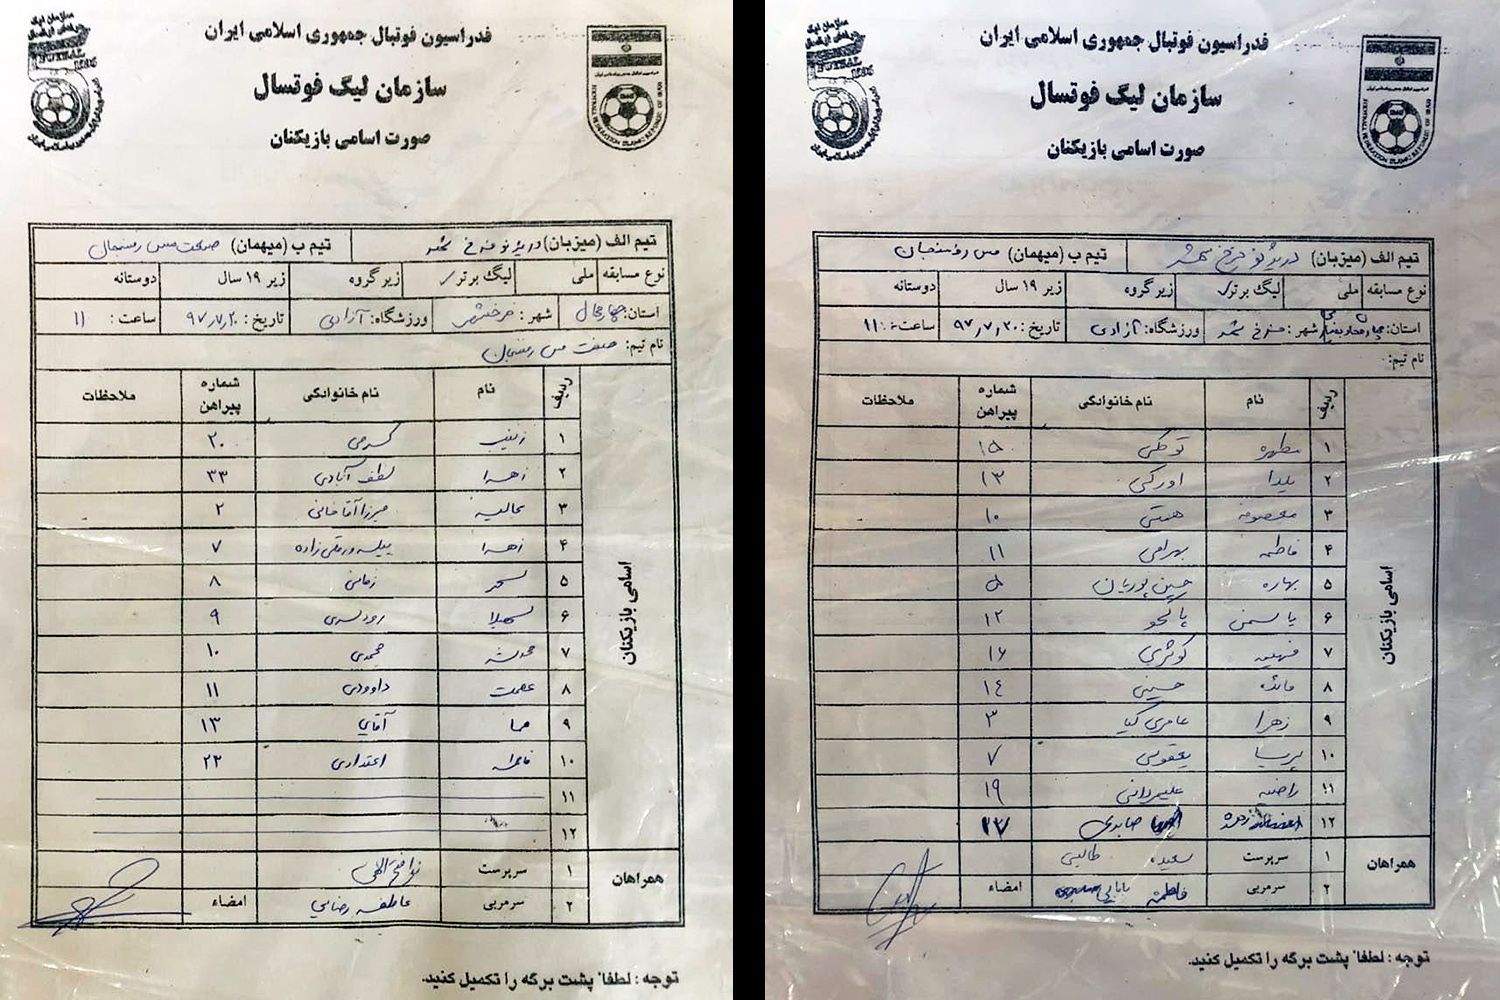 فدراسیون فوتبال جمهوری اسلامی ایران
سازمان لیگ فوتسال
صورت اسامی بازیکنان
تیم الف (میزبان) دریژنو فرخ شهر تیم ب (میهمان) صنعت مس رفسنجان
نوع مسابقه ملی لیگ برتر زیر گروه زیر ۱۹ سال دوستانه
استان: چهارمحال شهر: فرخشهر ورزشگاه: آزادی تاریخ: ۹۷,۷,۲۰ ساعت: ۱۱
نام تیم: صنعت مس رفسنجان
ردیف نام نام خانوادگی شماره پیراهن ملاحظات
اسامی بازیکنان
۱ زینب کرمی ۲۰
۲ زهرا لطف آبادی ۳۳
۳ عالیه میرزا آقا خانی ۲
۴ زهرا ۷
۵ سحر زمانی ۸
۶ سهیلا رودسری ۹
۷ محدثه محمدی ۱۰
۸ عصمت داوودی ۱۱
۹ هما آقایی ۱۳
۱۰ اعتدادی ۲۲
۱۱
۱۲
همراهان
۱ سرپرست
۲ سرمربی عاطفه رضایی امضاء
توجه : لطفاً پشت برگه را تکمیل کنید.
فدراسیون فوتبال جمهوری اسلامی ایران
سازمان لیگ فوتسال
صورت اسامی بازیکنان
تیم الف (میزبان) دریژنو فرخ شهر تیم ب (میهمان) مس رفسنجان
نوع مسابقه ملی لیگ برتر زیر گروه زیر ۱۹ سال دوستانه
استان: شهر: فرخ شهر ورزشگاه: آزادی تاریخ: ۹۷,۷,۲۰ ساعت: ۱۱
نام تیم:
ردیف نام نام خانوادگی شماره پیراهن ملاحظات
اسامی بازیکنان
۱ مطهره توکلی ۱۵
۲ یلدا اورکی ۱۳
۳ معصومه همتی ۱۰
۴ فاطمه بهرامی ۱۱
۵ بهاره حسین پوریان ۵
۶ یاسمن ۱۲
۷ فهیمه کوثری ۱۶
۸ مائده حسینی ۱۴
۹ زهرا عامری کیا ۳
۱۰ پریسا یعقوبی ۷
۱۱ راضیه علیمردانی ۱۹
۱۲ زهره صابری ۲۷
همراهان
۱ سرپرست سعیده طالبی
۲ سرمربی فاطمه بابایی امضاء
توجه : لطفاً پشت برگه را تکمیل کنید.